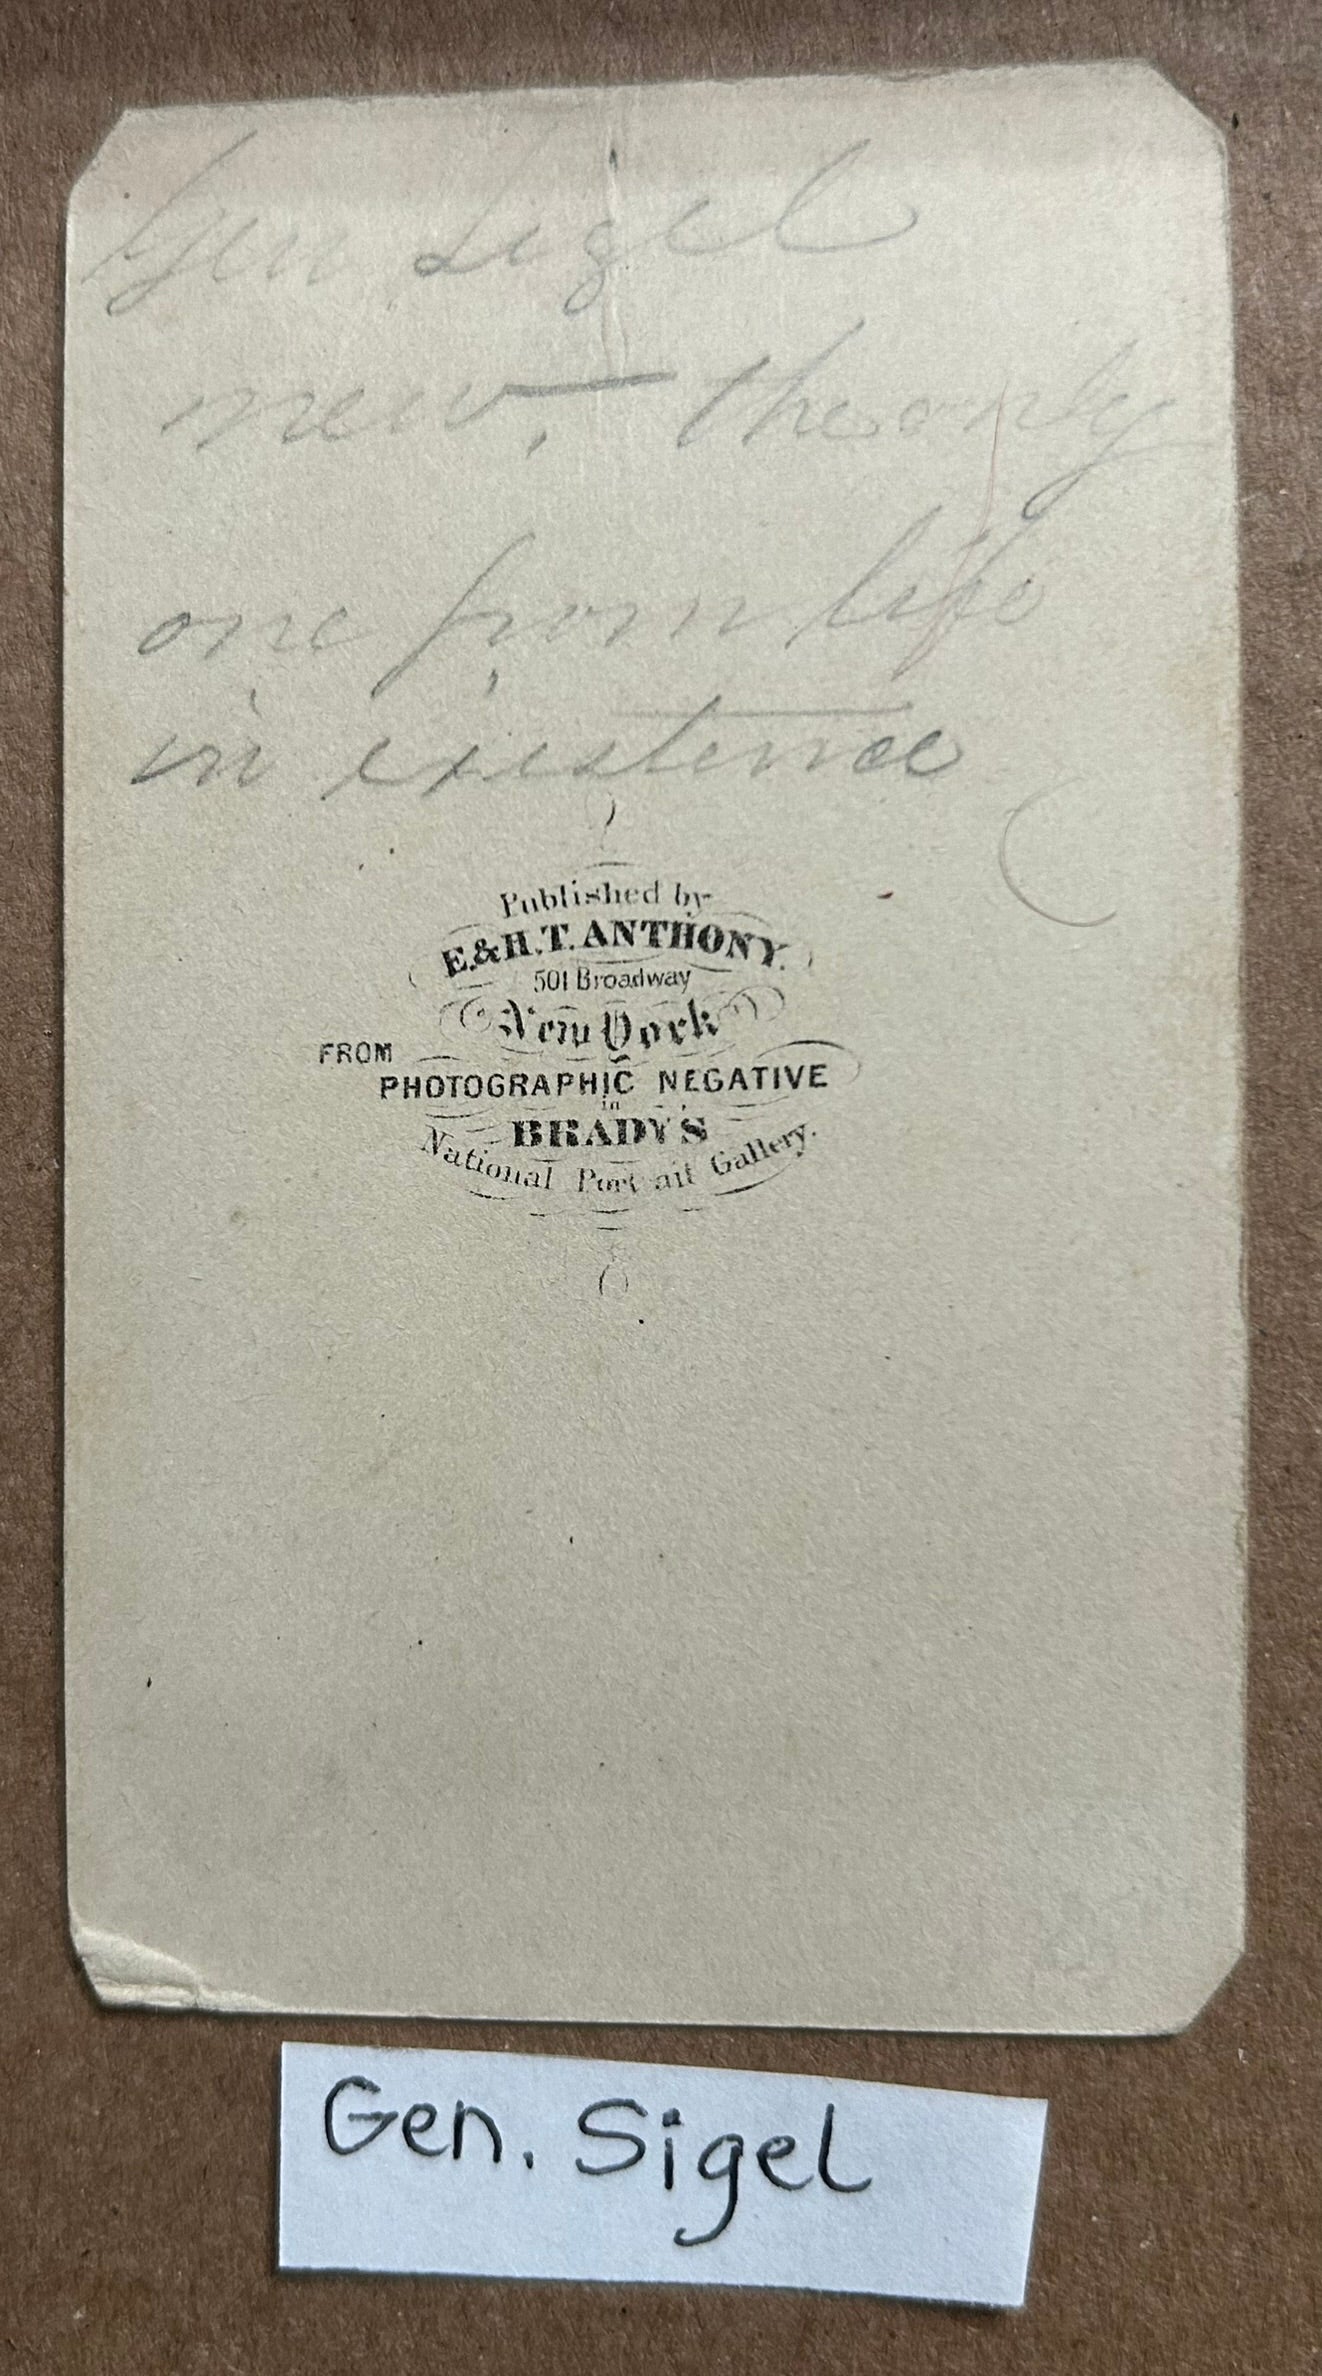 Gen Sigel
new, — the only
one from life
in existence
Published by
E. & H. T. ANTHONY.
501 Broadway
New York
FROM
PHOTOGRAPHIC NEGATIVE
in
BRADY'S
National Portrait Gallery.
Gen. Sigel